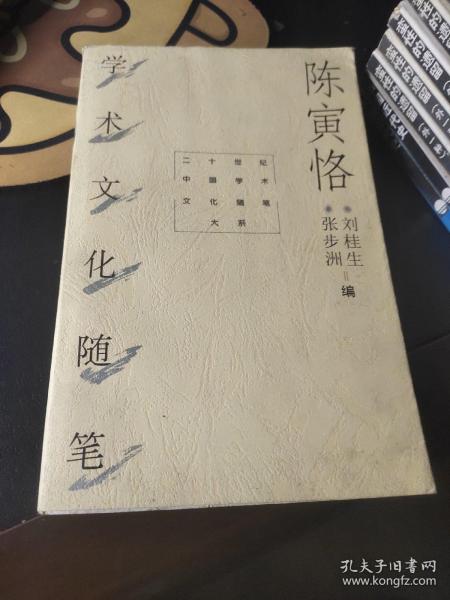 陈寅恪
学术文化随笔
二十世纪
中国学术
文化随笔
大系
刘桂生
张步洲
编
孔夫子旧书网
www.kongfz.com